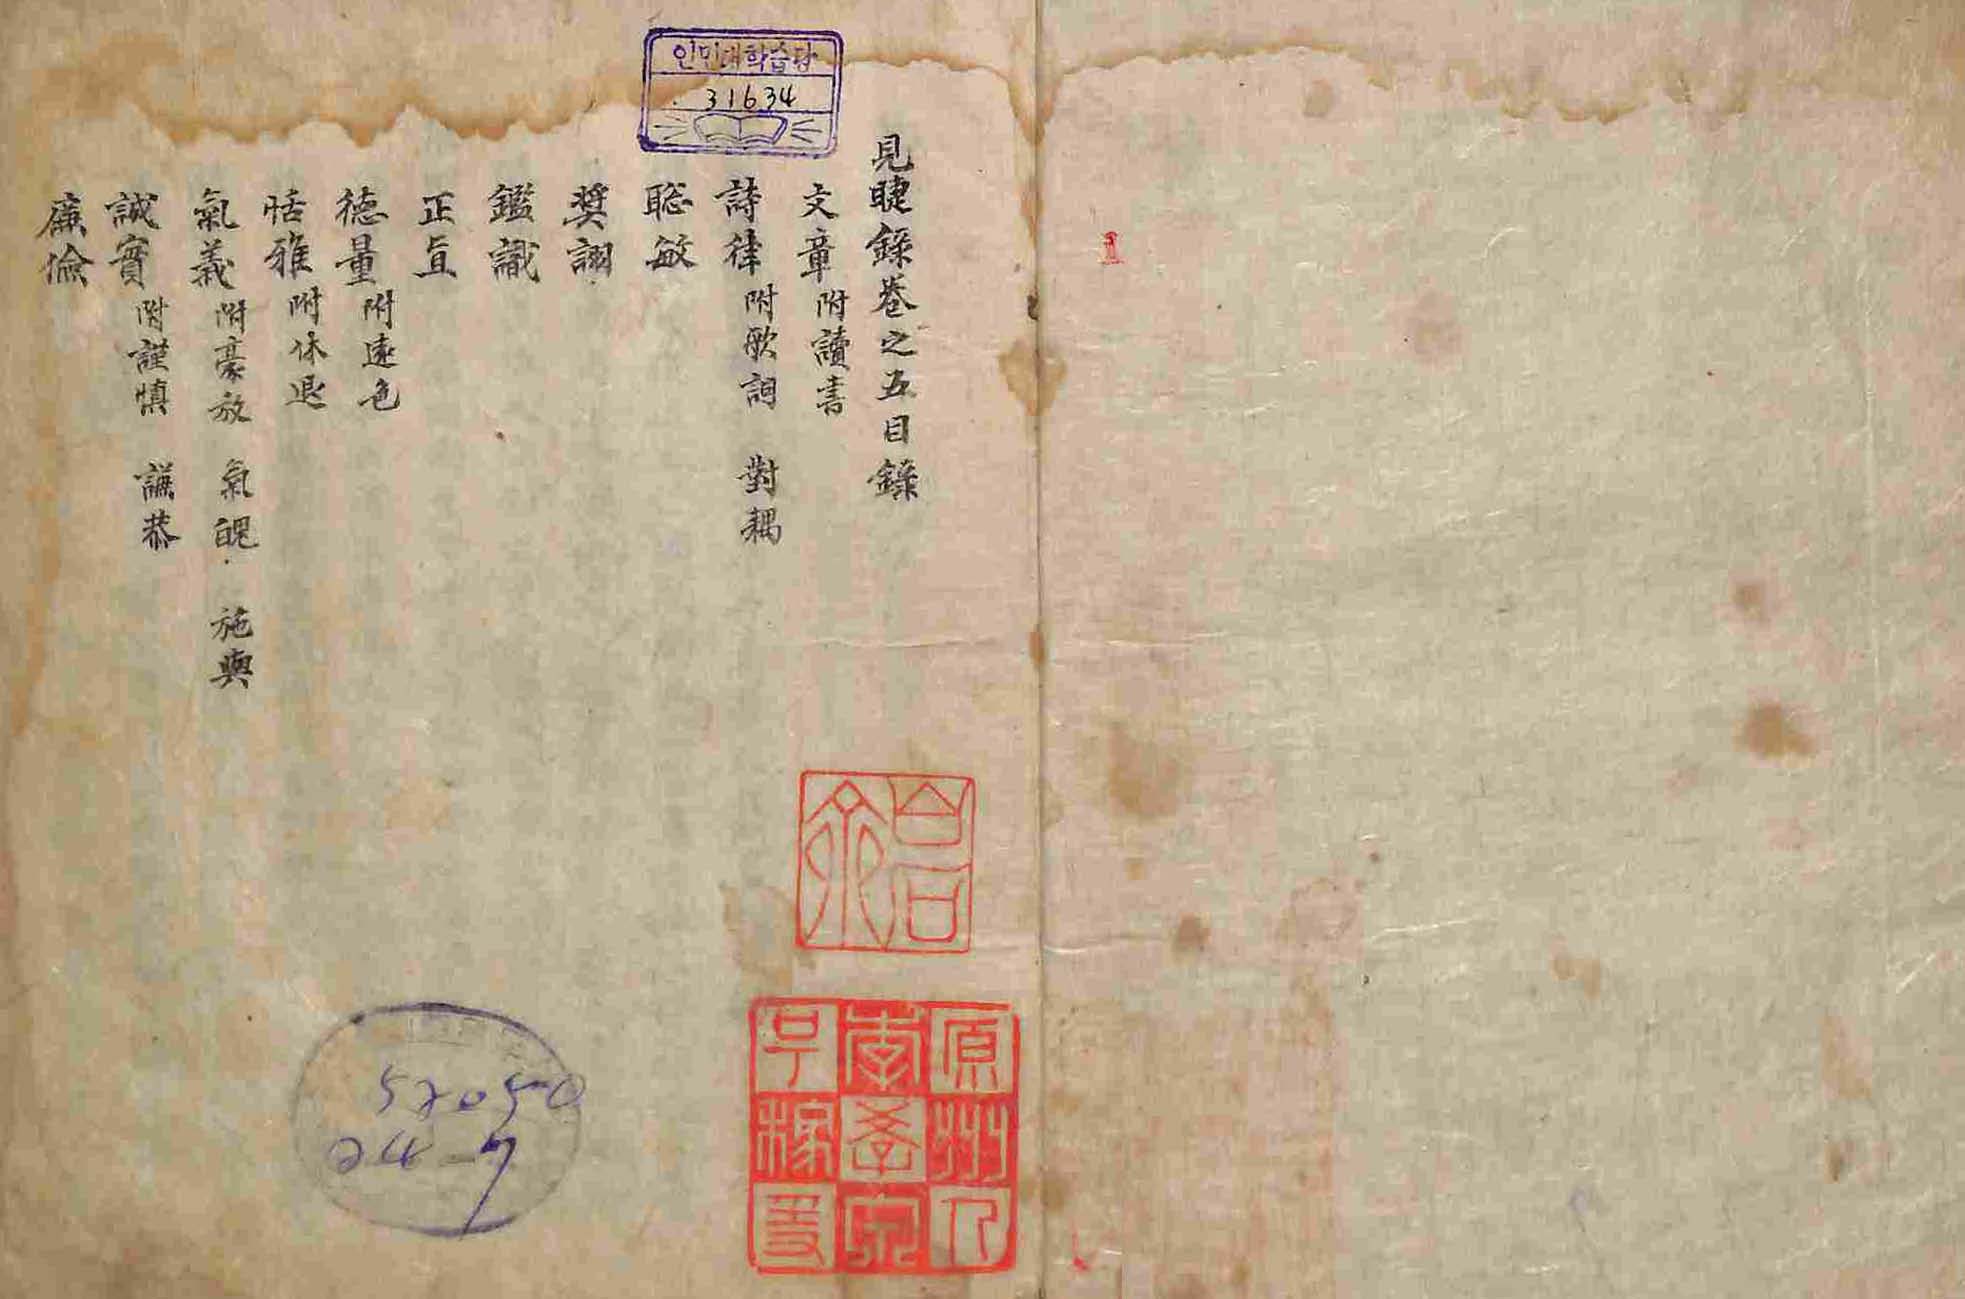 인민대학습당
31634
見睫錄卷之五目錄
文章 附讀書
詩律 附歌詞 對耦
聡敏
奬詡
鑑識
正直
徳量 附遠色
恬雅 附休退
氣義 附豪放 氣魄 施與
誠實 附謹愼 謙恭
廉儉